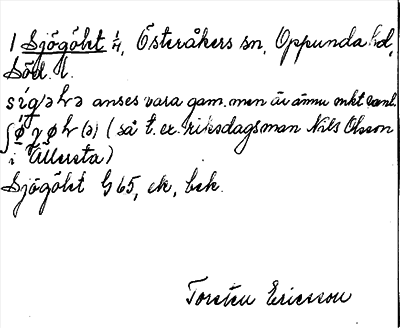 1 Sjögölet 1/4, Österåkers sn, Oppunda hd,
Söd. l.
anses vara gam. men är ännu enkt vanl.
(så t.ex. riksdagsman Nils Olsson
i Ullersta)
Sjögölet G 65, ek, bek.
Torsten Ericsson